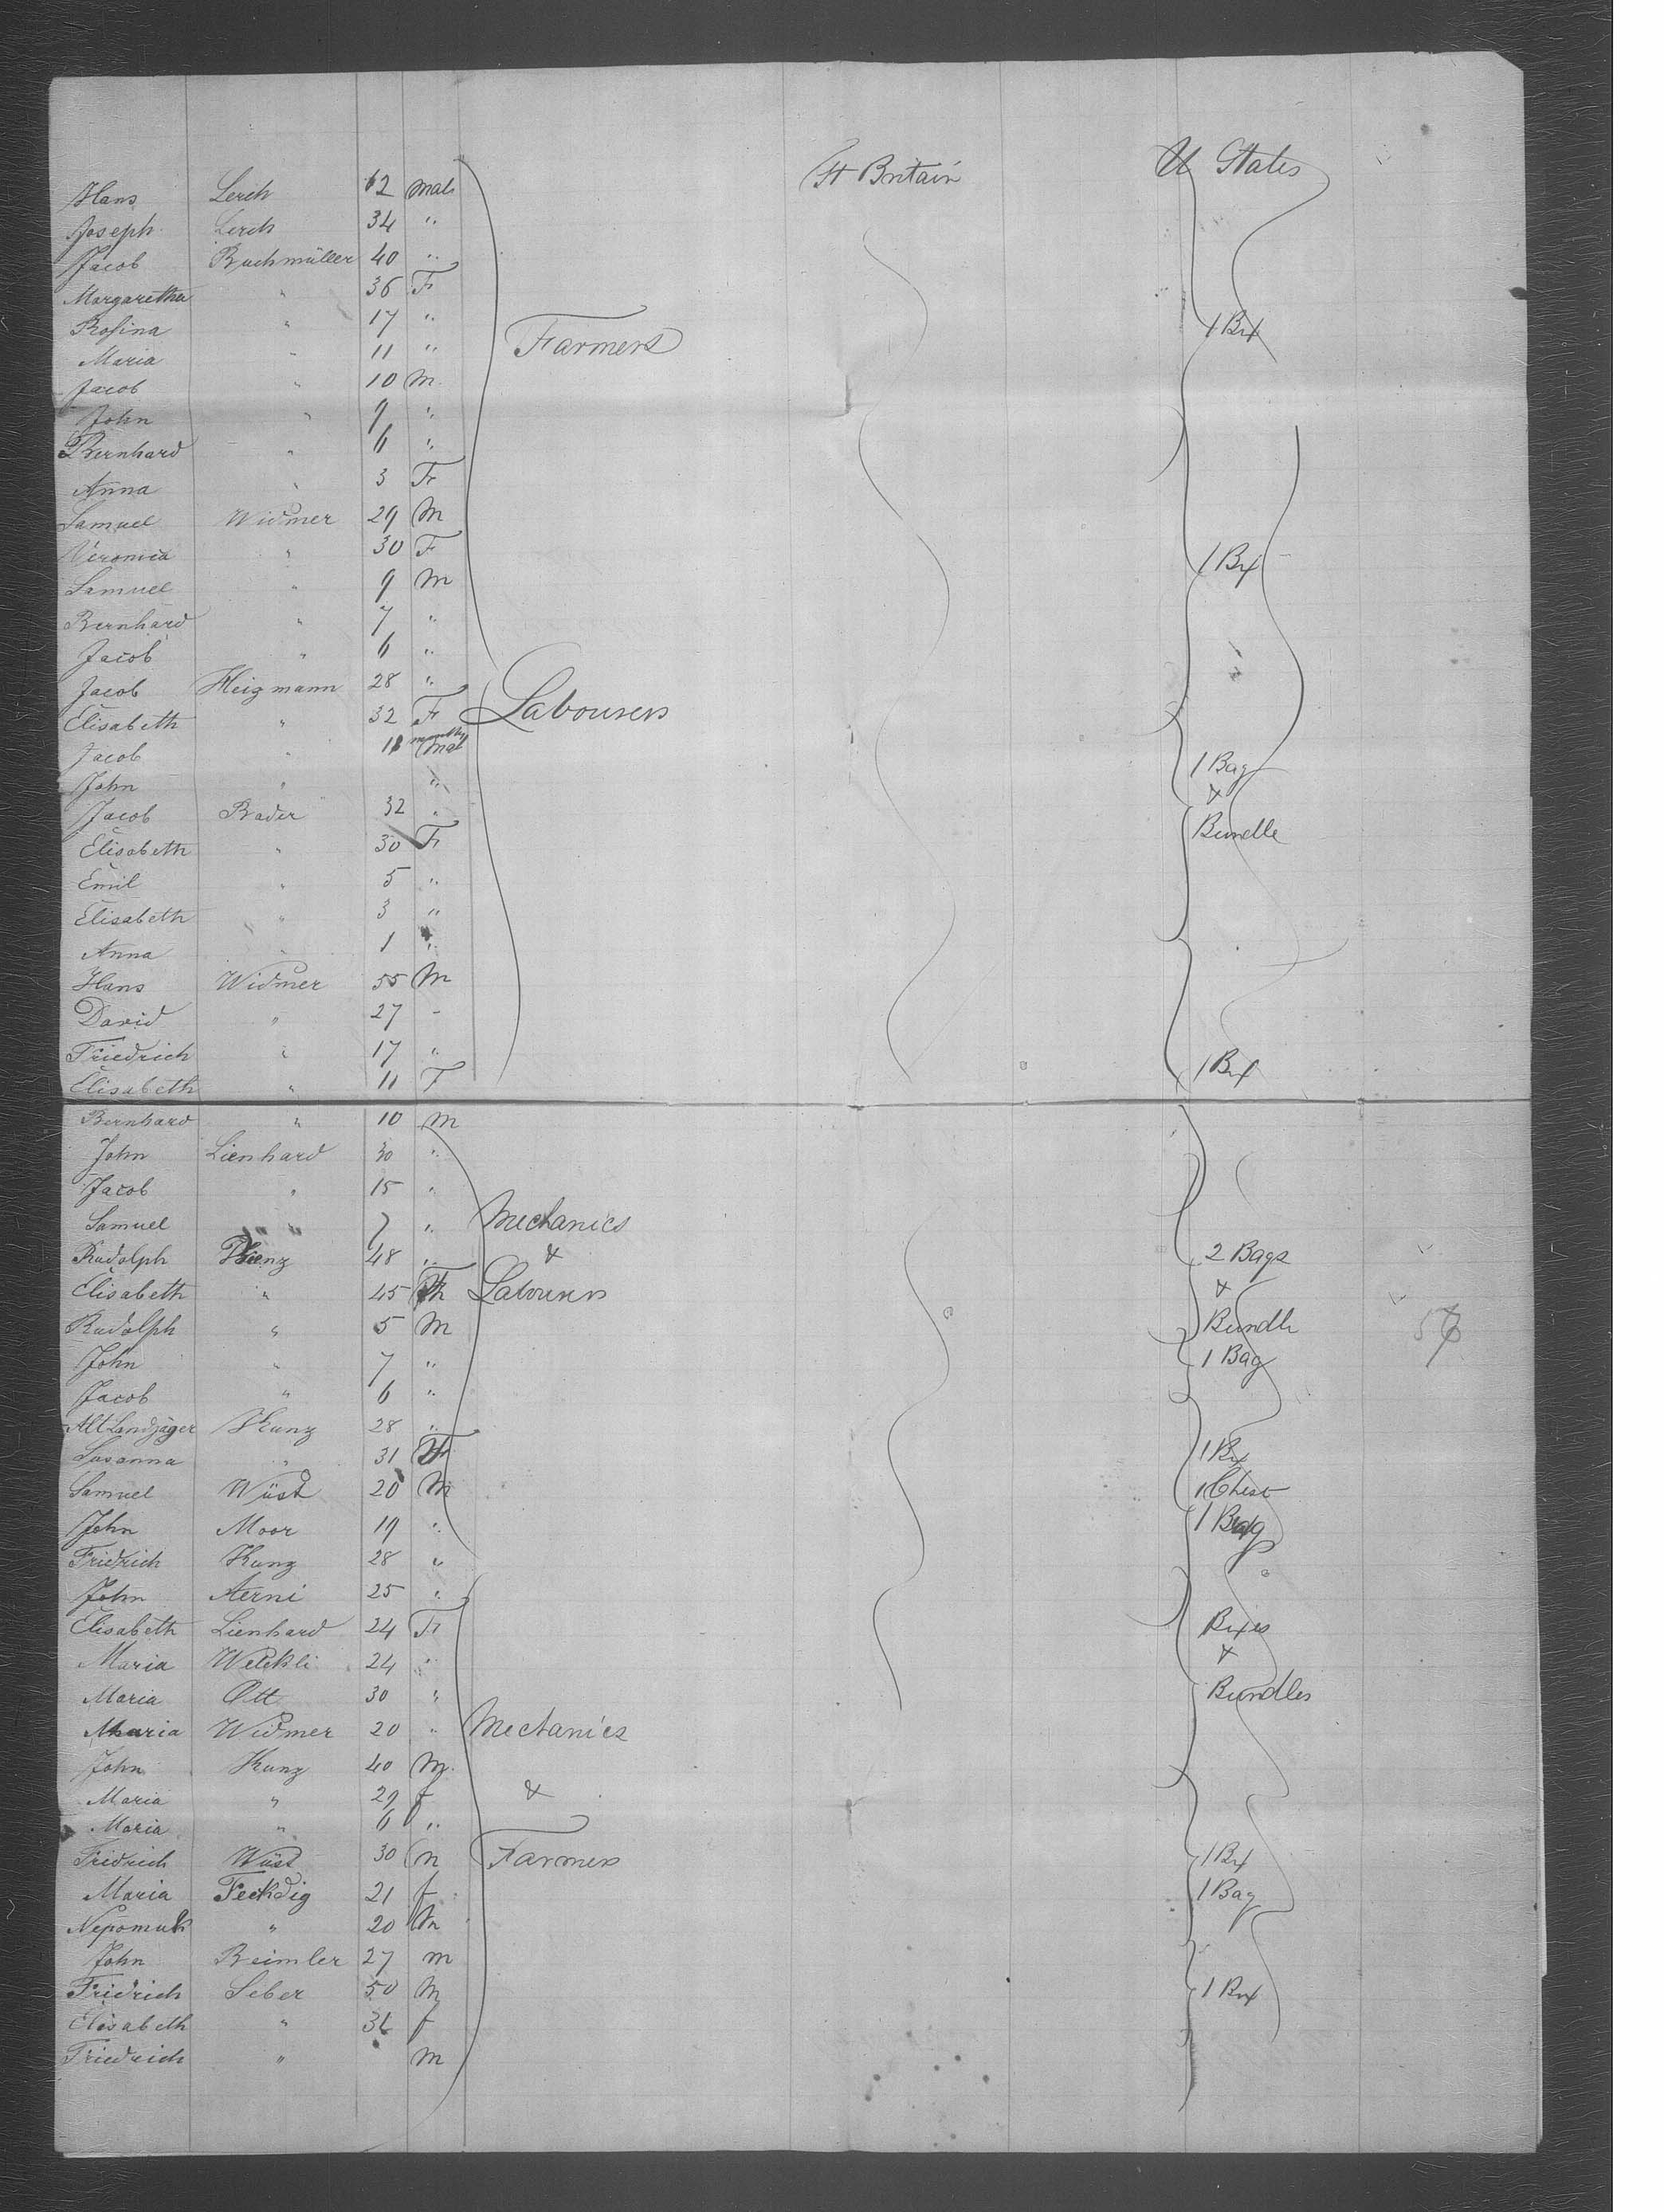 Gt Britain U States
Hans Lerch 62 male
Joseph Lerch 34 "
Jacob Buchmüller 40 "
Margaretha " 36 F
Rosina " 17 "
Maria " 11 " Farmers 1 Bx
Jacob " 10 M
John " 9 "
Bernhard " 6 "
Anna " 3 F
Samuel Widmer 29 M
Veronica " 30 F 1 Bx
Samuel " 9 M
Bernhard " 7 "
Jacob " 6 "
Jacob Heizmann 28 "
Elisabeth " 32 F Labourers
Jacob " months Mal 1 Bag
John " " &
Jacob Bader 32 " Bundle
Elisabeth " 30 F
Emil " 5 "
Elisabeth " 3 "
Anna " 1 "
Hans Widmer 55 M
David " 27 "
Friedrich " 17 "
Elisabeth " 11 F 1 Bx
Bernhard " 10 M
John Lienhard 30 "
Jacob " 15 "
Samuel " 7 " Mechanics
Rudolph 48 " & 2 Bags
Elisabeth " 45 F Labourers &
Rudolph " 5 M Bundle
John " 7 " 1 Bag
Jacob " 6 "
Alt Landjäger Kunz 28 "
Susanna " 31 F 1 Bx
Samuel Wüst 20 M 1 Chest
John Moor 19 " 1 Bag
Fridrich Kunz 28 "
John Aerni 25 "
Elisabeth Lienhard 24 F Bxes
Maria Weekli 24 " &
Maria Ott 30 " Bundles
Maria Widmer 20 " Mechanics
John Kunz 40 M
Maria " 29 f &
Maria " 6 "
Fridrich Wüst 30 m Farmers 1 Bx
Maria Feckdig 21 f 1 Bag
Nepomuk " 20 m
John Beimler 27 m
Fridrich Seber 50 M 1 Bx
Elisabeth " f
Friedrich " m